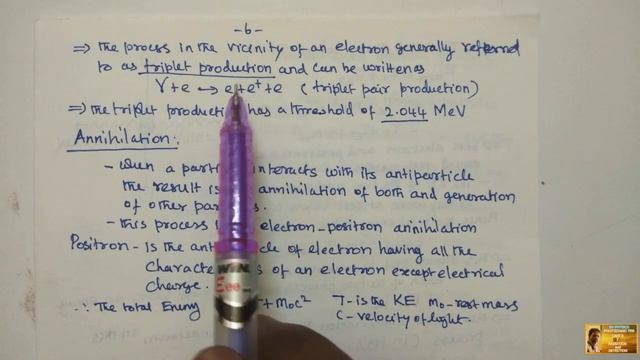 -6-
⇒ The process in the vicinity of an electron generally referred
to as triplet production and can be written as
γ + e ↔ e + e⁺ + e (triplet pair production)
⇒ The triplet producti has a threshold of 2.044 MeV
Annihilation:.
- when a parti interacts with its antiparticle
the result is annihilation of both and generation
of other par s.
- this process i electron-positron annihilation
Positron - Is the anti cle of electron having all the
Characte s of an electron except electrical
charge.
∴ The total Energy + m₀c² T- is the KE m₀- rest mass
C- velocity of light.
WIN
Eee